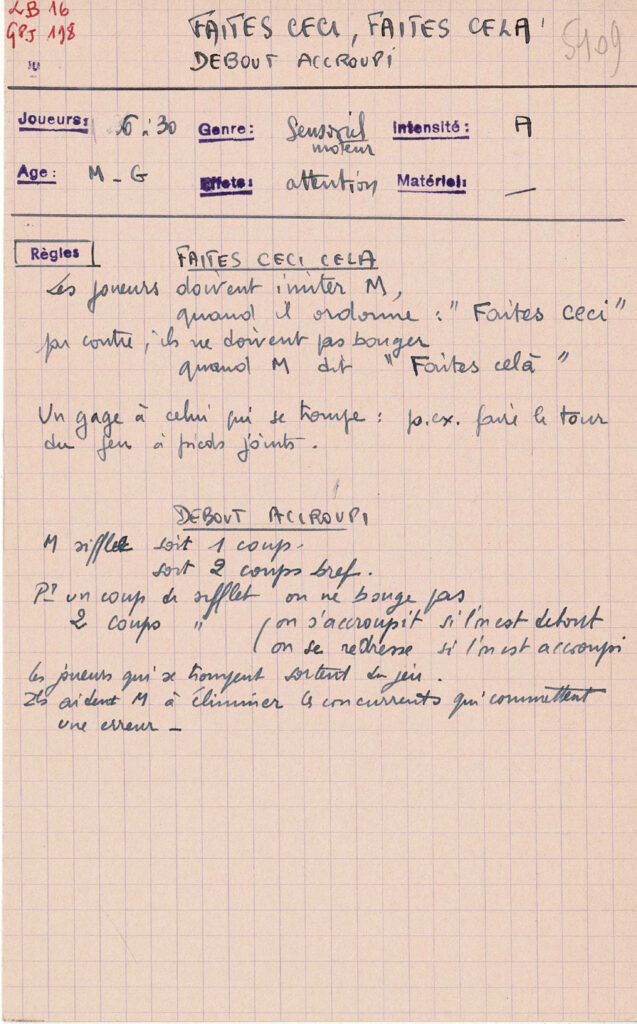 LB 16
GPJ 198
FAITES CECI, FAITES CELA
DEBOUT ACCROUPI
5109
Joueurs: 6 à 30 Genre: Sensoriel moteur Intensité: A
Age: M - G Effets: attention Matériel: —
Règles
FAITES CECI CELA
Les joueurs doivent imiter M,
quand il ordonne : " Faites ceci "
par contre, ils ne doivent pas bouger
quand M dit " Faites celà "
Un gage à celui qui se trompe : p.ex. faire le tour
du jeu à pieds joints .
DEBOUT ACCROUPI
M siffle soit 1 coup.
soit 2 coups bref.
Pr un coup de sifflet on ne bouge pas
2 coups " ( on s'accroupit si l'on est debout
on se redresse si l'on est accroupi
Les joueurs qui se trompent sortent du jeu .
Ils aident M à éliminer les concurrents qui commettent
une erreur —